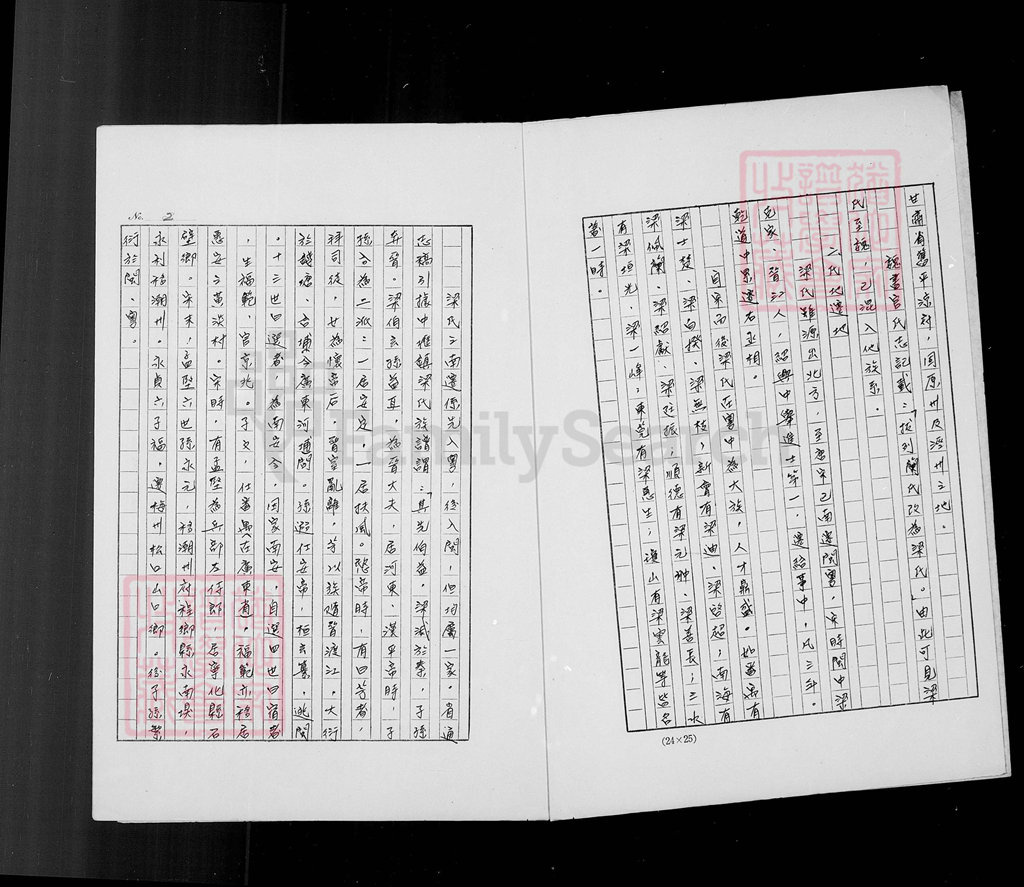 甘肅省舊平涼府,固原州及涇州之地。
魏書官氏志記載:「拔列蘭氏改為梁氏。」由此可見梁
氏至魏,已混入他族系。
二代代遷地
梁氏雖源出北方,至唐宋已南遷閩粵,宋時閩中梁
克家,晉江人,紹興中舉進士第一,遷給事中,凡三年。
乾道中累遷右丞相。
自宋而後梁氏在粵中為大族,人才鼎盛。如番禺有
梁士楚、梁向揆、梁無枝;新會有梁迪、梁啓超;南海有
梁佩蘭、梁紹獻、梁廷振;順德有梁元柳、梁善長;三水
有梁垣光、梁一峰;東莞有梁思生;瓊山有梁雲龍等皆名
蓋一時。
(24×25)
No. 2
梁氏之南遷係先入粵,後入閩,但均屬一家。省通
志稿引據中堆鎮梁氏族譜謂:「其先伯益。梁滅於秦,子孫
奔晉。梁伯玄孫益耳,為晉大夫,居河東。漢平帝時,子
孫分為二派:一居安定,一居扶風。愍帝時,有曰芳者,
拜司徒,女為懷帝后。晉室亂離,芳以族隨晉渡江。大衍
於錢塘。古埔今廣東河埔間。孫遐仕安帝,桓玄篡,逃閩
。十三世曰選者,為南安令,因家南安。自選四世曰宿者
,生福範,官京兆。子文,仕番禺在廣東省。福範亦移居
惠安之黃淡村。宋時,有孟堅為兵部左侍郎,居寧化縣石
壁鄉。宋末,孟堅六世孫永元,移潮州府程鄉縣永南縣,
永利移潮州。永貞六子福,遷梅州松口山口鄉。後子孫繁
衍於閩、粵。
FamilySearch